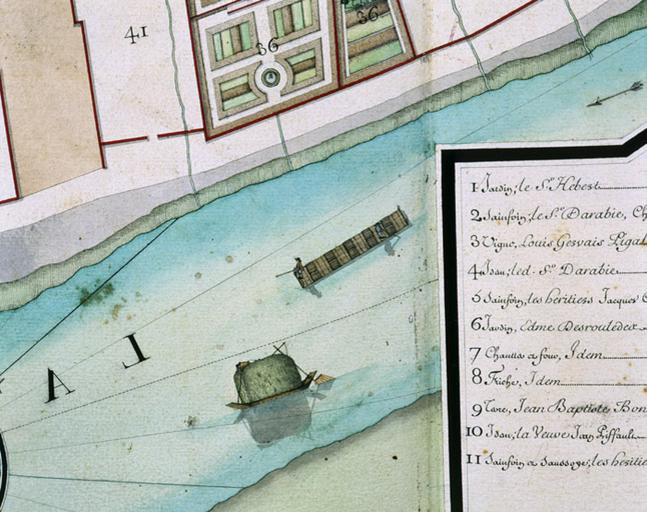 41
36
36
I
A
1 Jardin, le Sr. Hebert
2 Sainfoin, le Sr. Darabie, Ch
3 Vigne, Louis Gervais Pigal
4 Idem; led. Sr. Darabie
5 Sainfoin, les héritiers Jacques
6 Jardin, Edme Desrouledex
7 Chaulss a four, Idem
8 Friche, Idem
9 Terre, Jean Baptiste Bon
10 Idem; la Veuve Jean Piffault
11 Sainfoin a Saussoye; les héritie